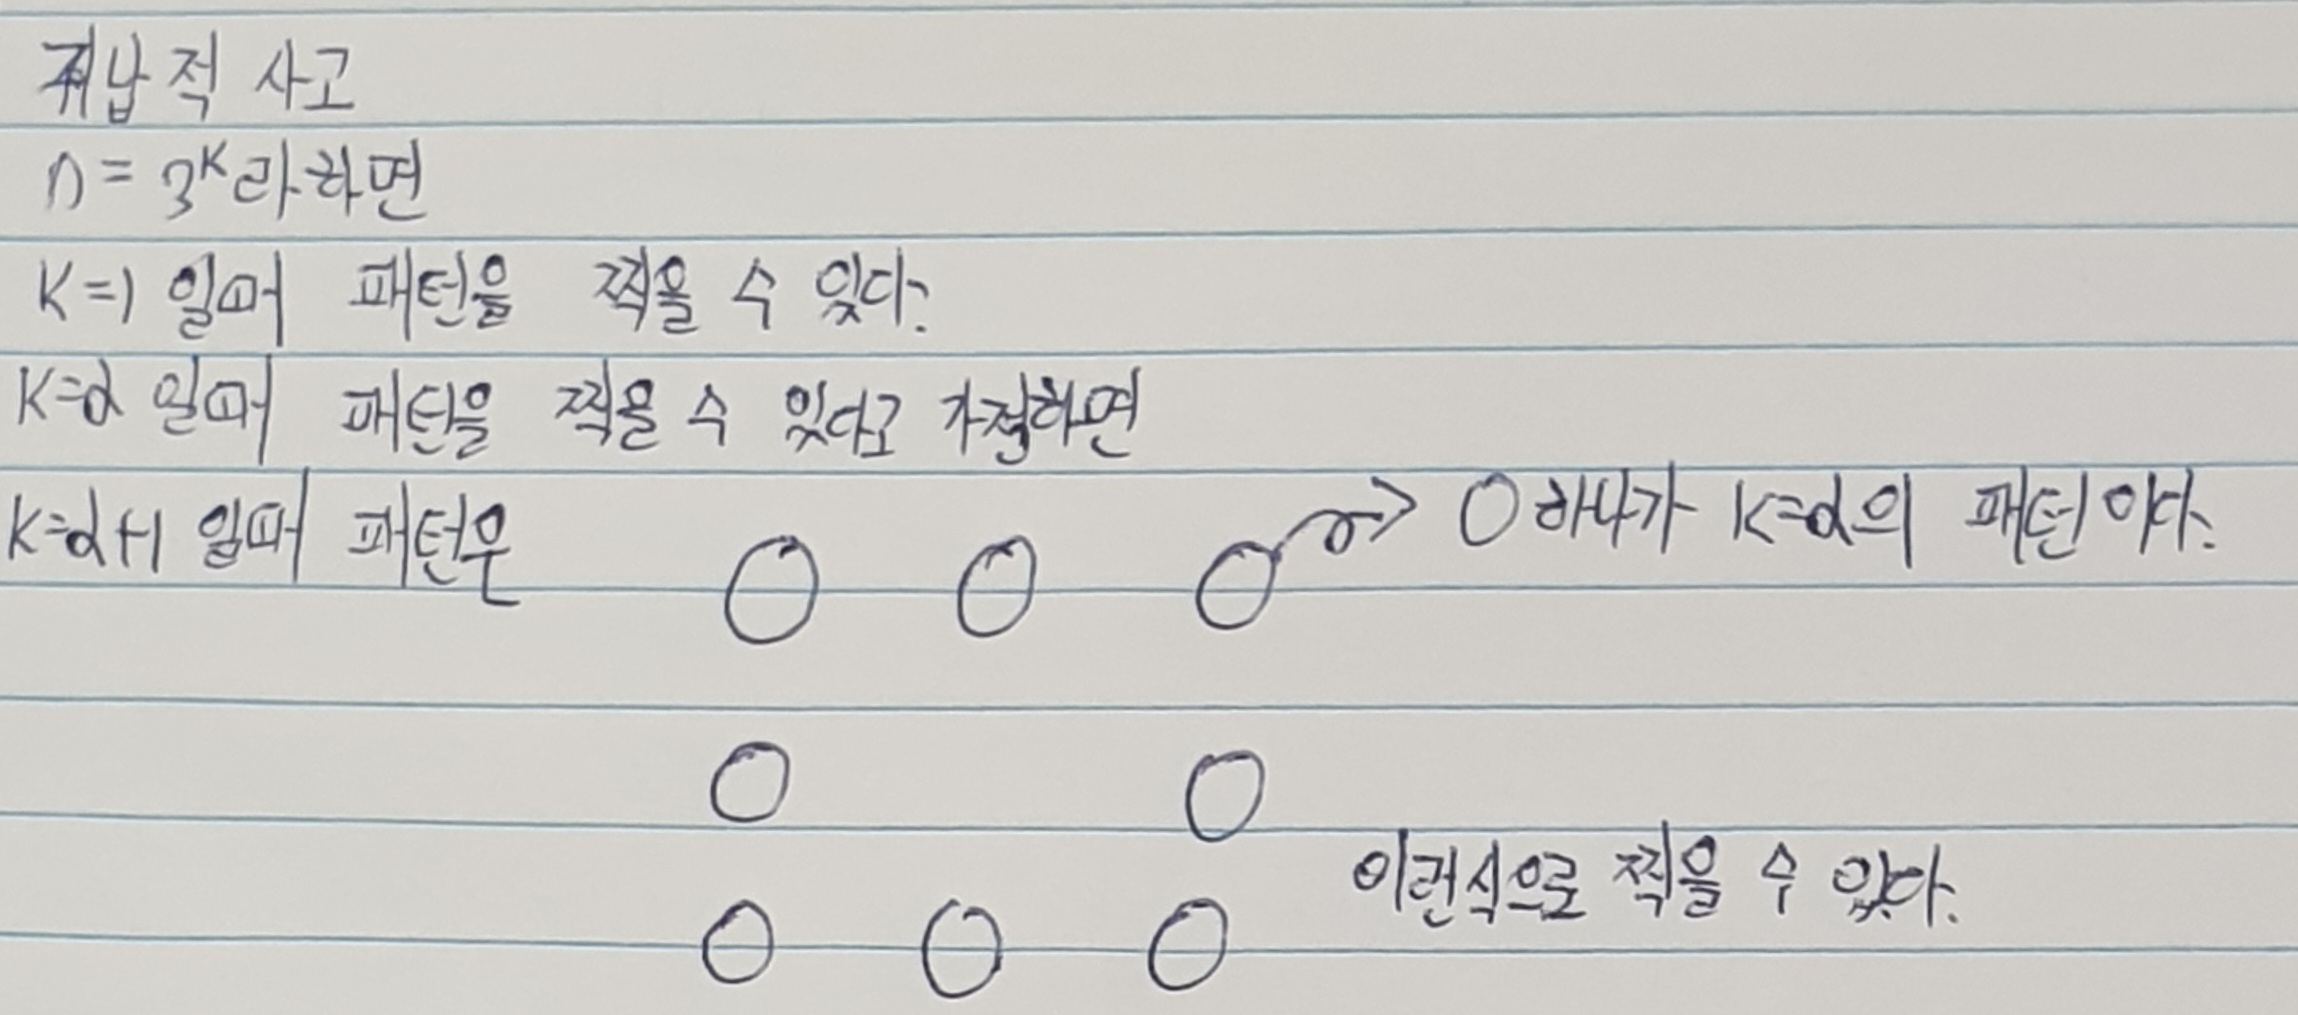 귀납적 사고
n = 3^k라하면
k=1 일때 패턴을 찍을 수 있다.
k=α 일때 패턴을 찍을 수 있다고 가정하면
k=α+1 일때 패턴은
O하나가 k=α의 패턴이다.
이런식으로 찍을 수 있다.